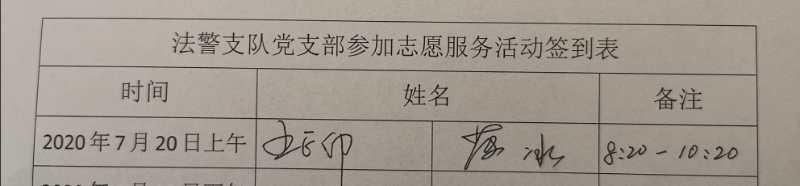 法警支队党支部参加志愿服务活动签到表
时间 姓名 备注
2020年7月20日上午 冰 8:20-10:20